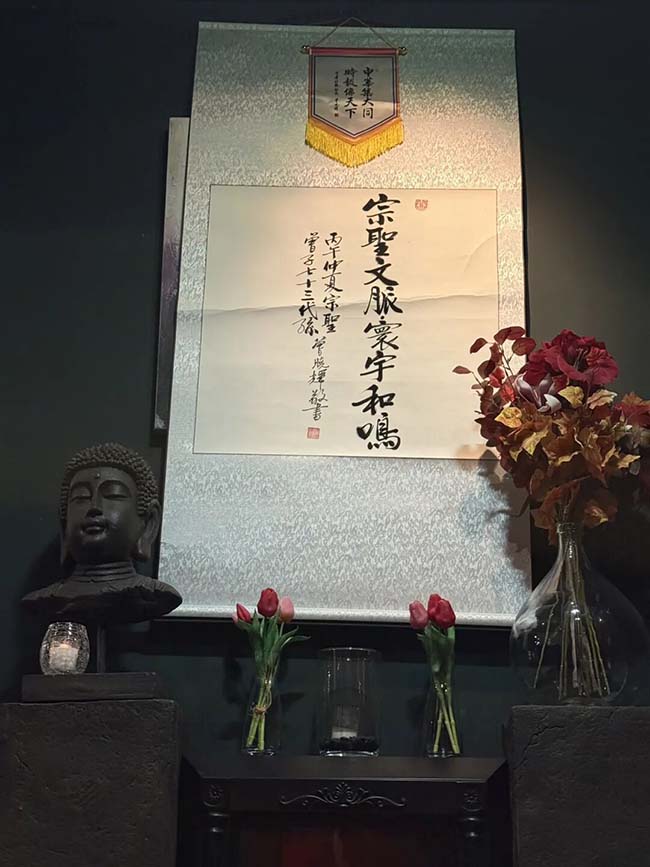 中華集大同
時教傳天下
宗聖文脈寰宇和鳴
丙午仲夏宗聖
曾子七十三代孫 曾慶輝敬書